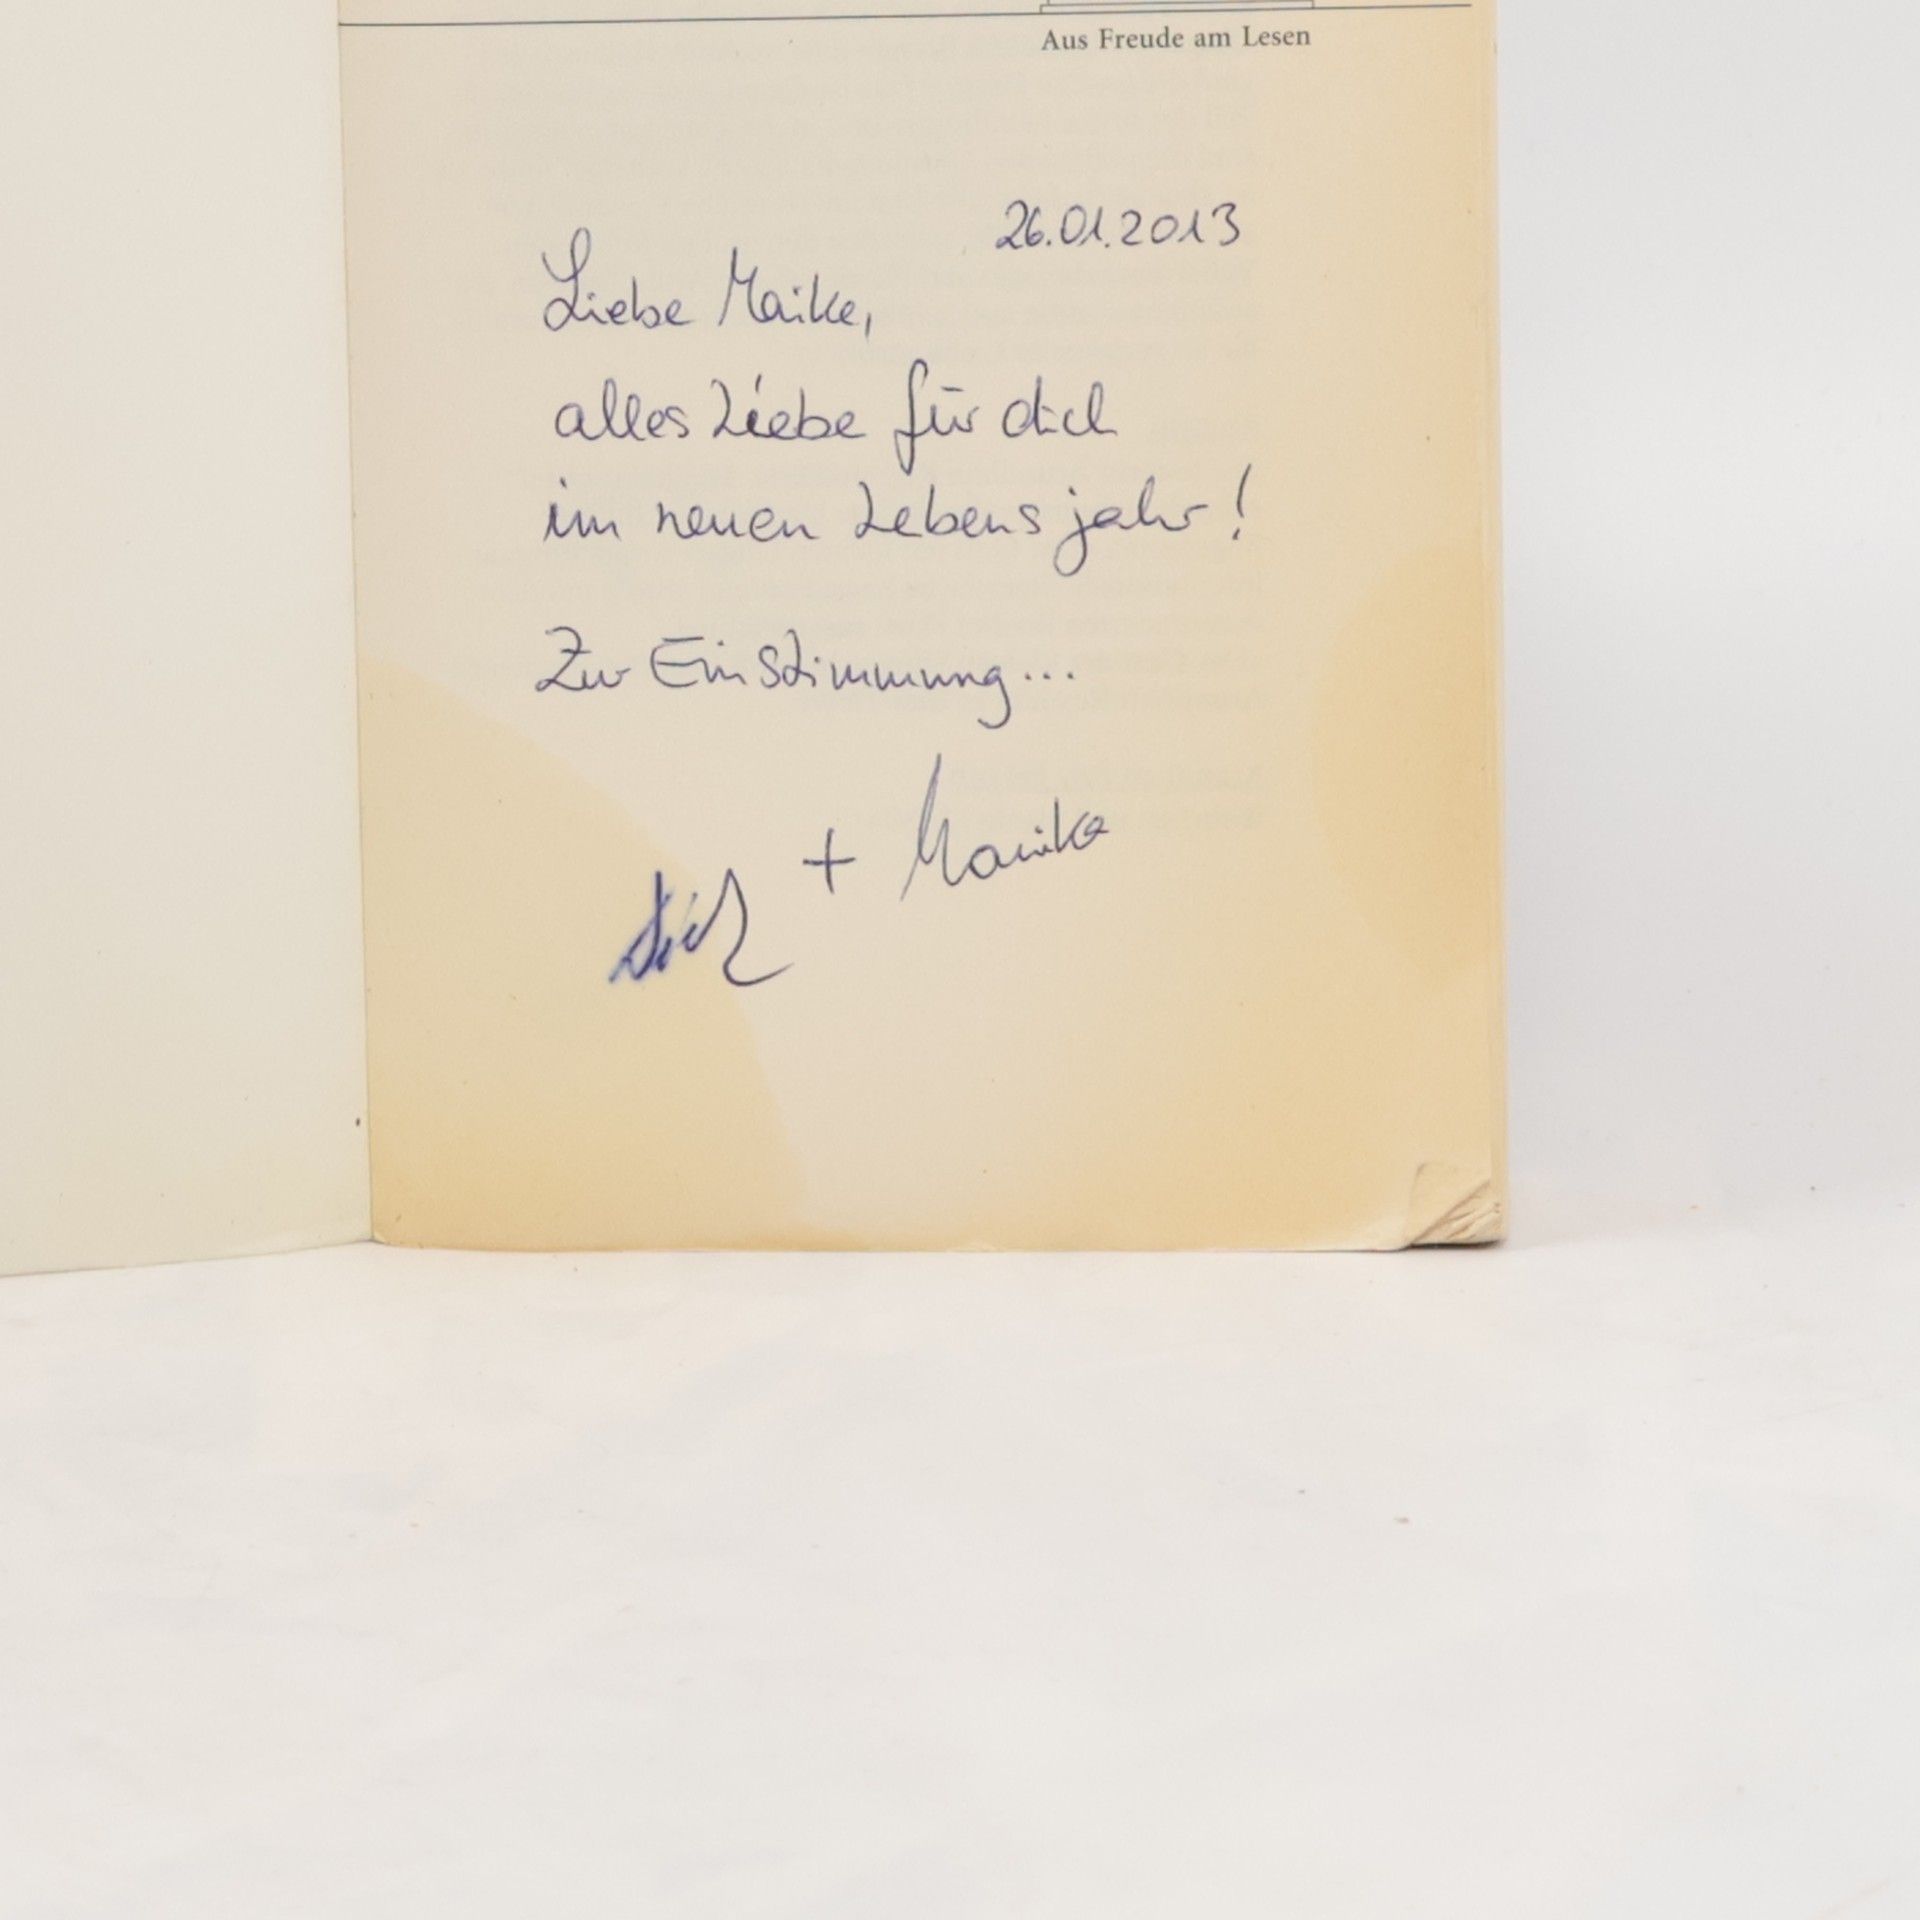 Aus Freude am Lesen
26.01.2013
Liebe Maike,
alles Liebe für dich
im neuen Lebensjahr!
Zur Einstimmung...
+ Marika